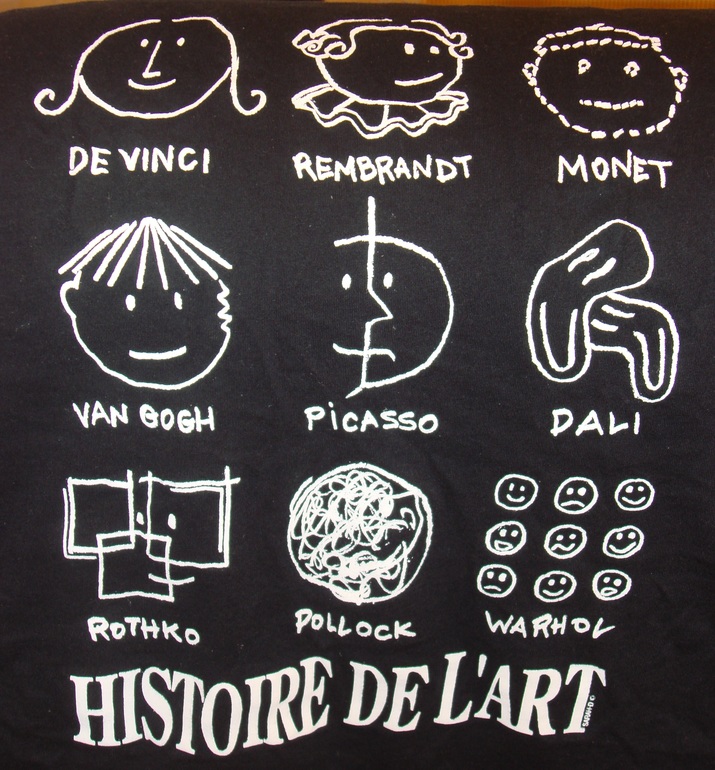 DE VINCI REMBRANDT MONET
VAN GOGH PiCASSO DALI
ROTHKO POLLOCK WARHOL
HISTOIRE DE L'ART